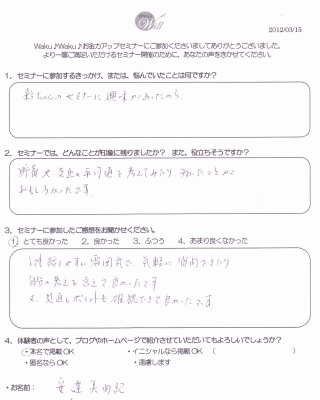 Will
2012/03/15
Waku♪Waku♪お金力アップセミナーにご参加くださいましてありがとうございました。
より一層ご満足いただけるセミナー開催のために、あなたの声をきかせてください。
1、セミナーに参加するきっかけ、または、悩んでいたことは何ですか？
彩ちゃんのセミナーに興味があったから
2、セミナーでは、どんなことが印象に残りましたか？ また、役立ちそうですか？
貯蓄や支出の平均値を考えてみたり、知ったことが
おもしろかったです。
3、セミナーに参加したご感想をお聞かせください。
① とても良かった 2、良かった 3、ふつう 4、あまり良くなかった
とても話しやすい雰囲気で、気軽に質問できたり
自分の考えを言えて良かったです
又、見直しポイントも確認できて良かったです。
4、体験者の声として、ブログやホームページで紹介させていただいてもよろしいでしょうか？
・本名で掲載OK ・イニシャルなら掲載OK （ ）
・匿名ならOK ・遠慮します
・お名前： 安達美由紀